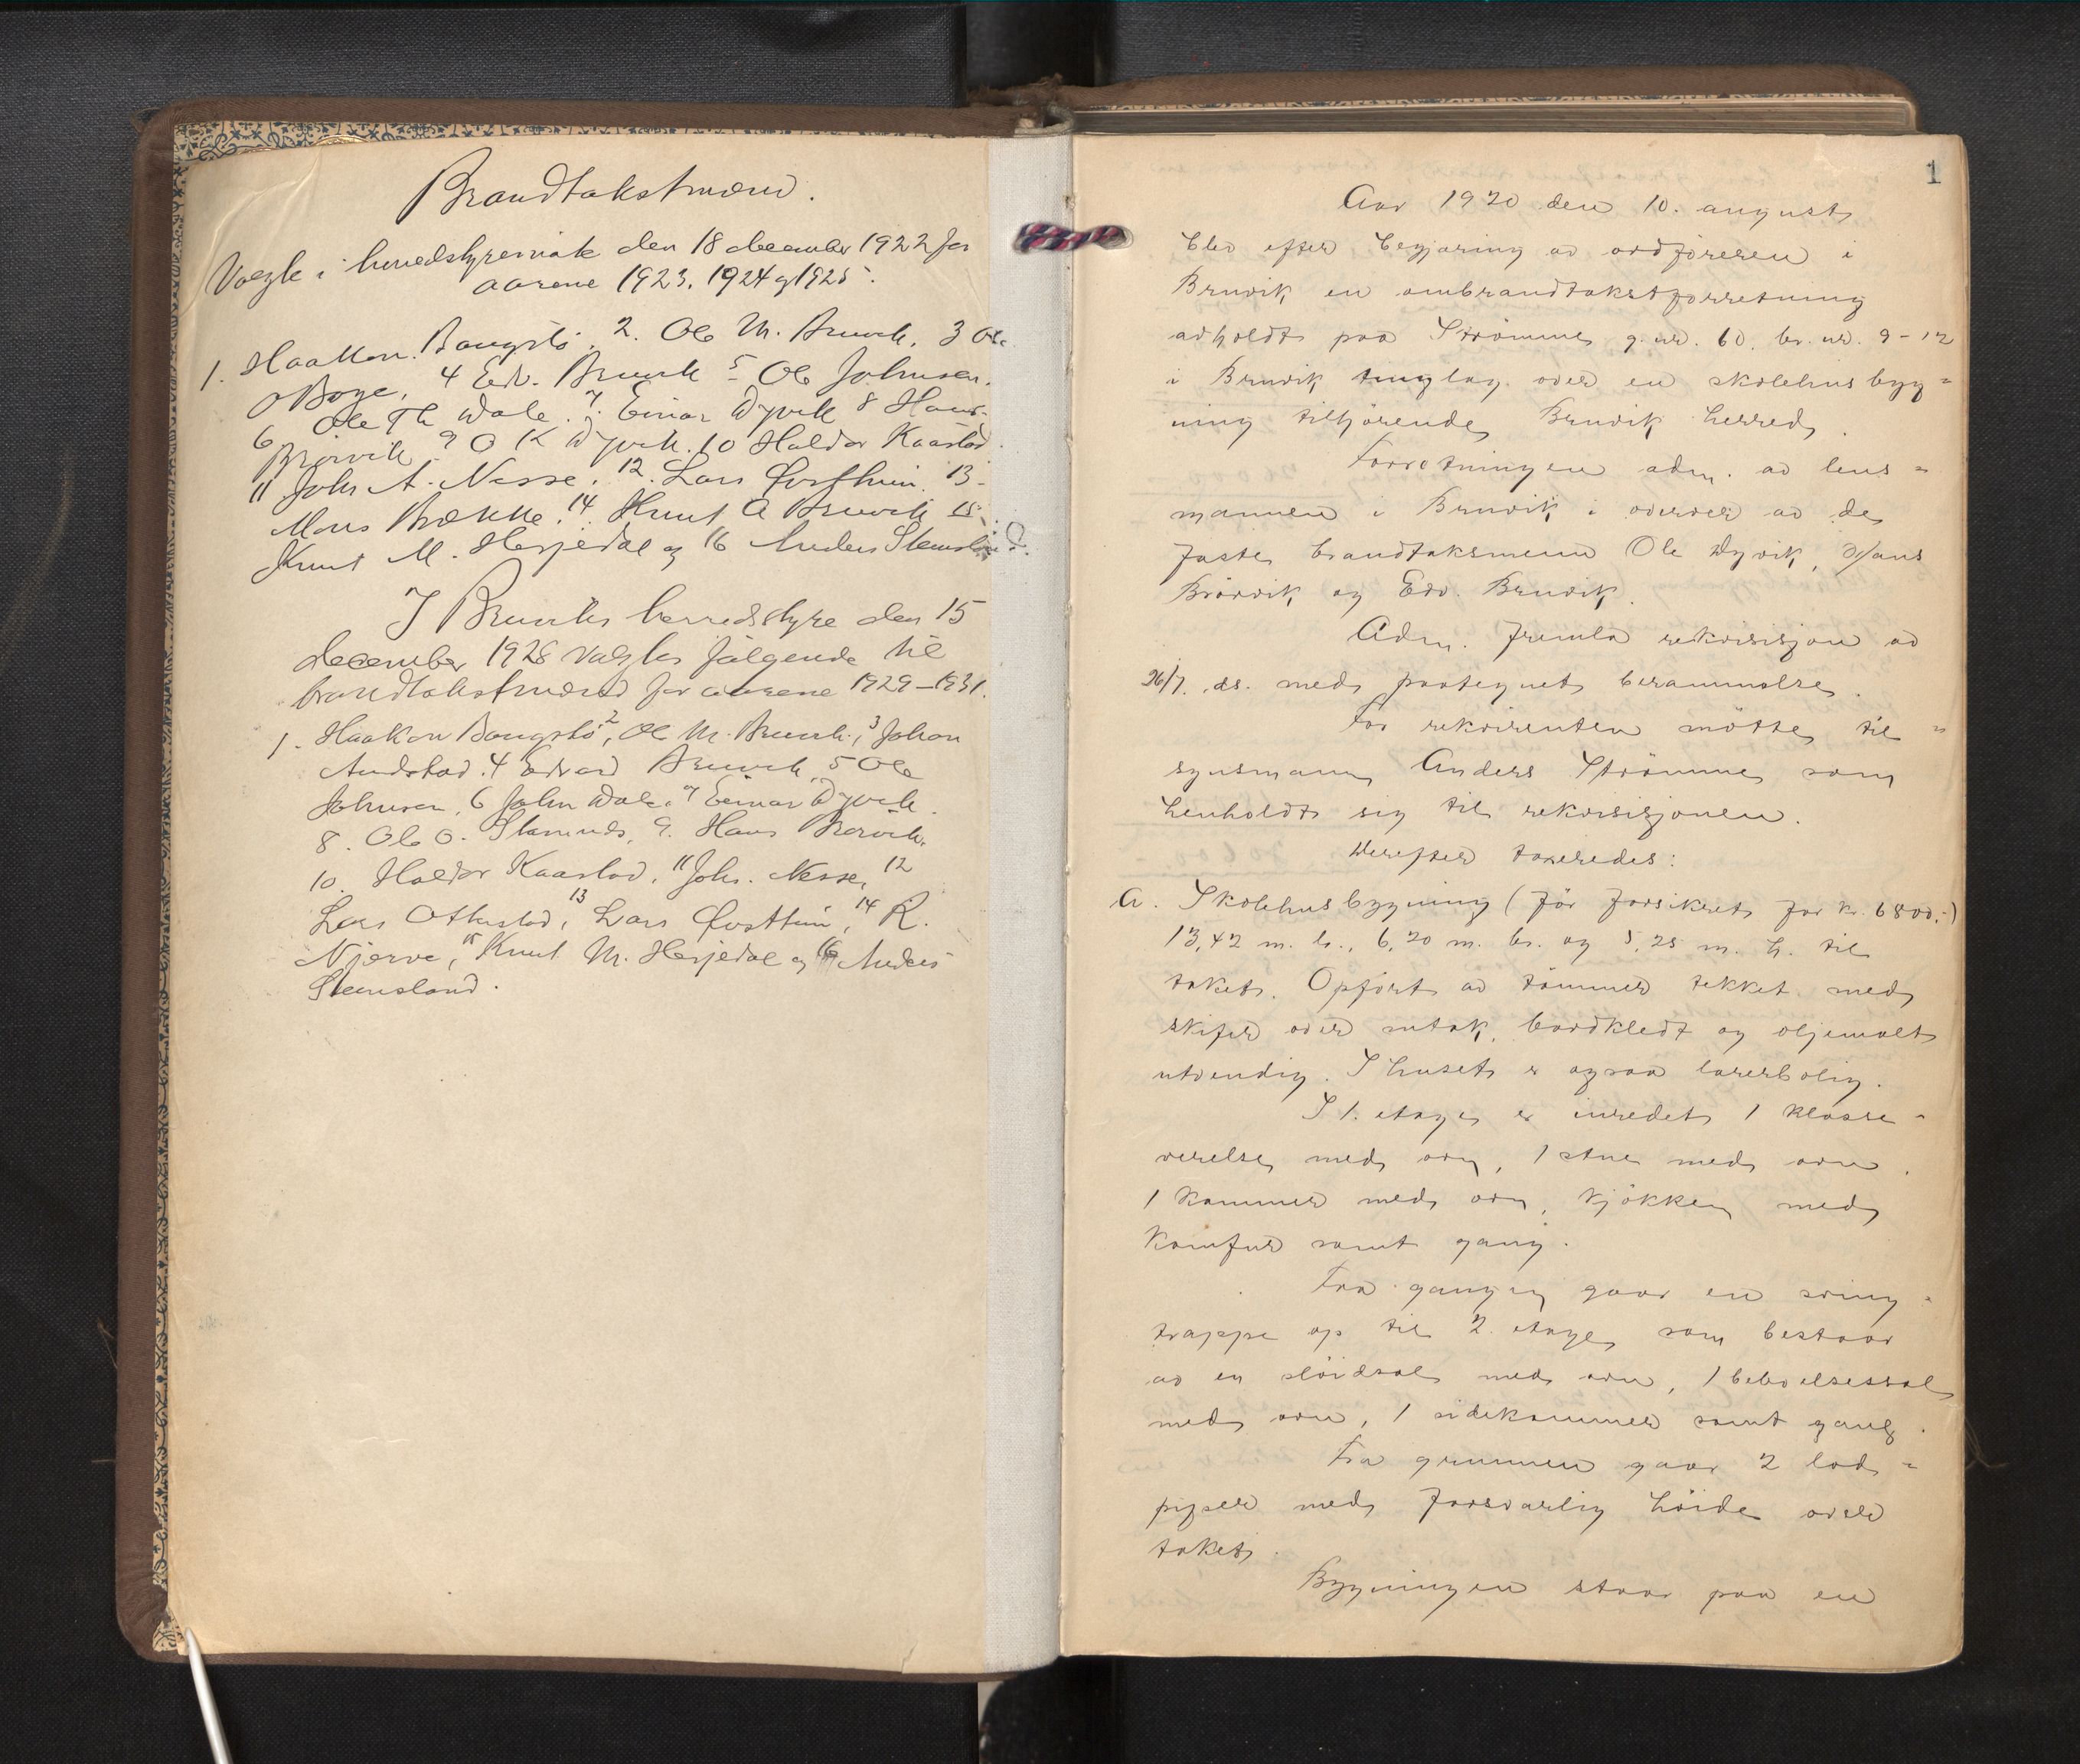 Brandtakstmænd.
Valgte i herredstyremøte den 18 december 1922 for
aarene 1923, 1924 og 1925.
1. Haakon Bougstø, 2. Ole M. Bruvik, 3 Ole
O Boge, 4 Edv. Bruvik 5 Ole Johnsen.
6 Ole Th Dale. 7. Einar Dyvik 8 Hans
Brørvik 9 O K Dyvik. 10 Haldor Kaarstad.
11 Johs A. Nesse, 12. Lars Øvsthun. 13
Mons Brække. 14. Knut A Bruvik 15.
Knut M. Herfjedal og 16 Anders Stensland.
I Bruviks herredsstyre den 15
december 1928 valgtes følgende til
brandtakstmænd for aarene 1929–1931.
1. Haakon Bougstø, 2 Ole M. Bruvik, 3 Johan
Audstad. 4 Edvard Bruvik, 5 Ole
Johnsen, 6 John Dale, 7 Einar Dyvik
8. Ole O. 9. Hans Børvik.
10. Haldor Kaarstad, 11 Johs. Nesse, 12
Lars Otterstad, 13 Lars Øvsthun, 14 R.
Njerve, 15 Knut M. Herfjedal og 16 Anders
Stensland.
1
Aar 1920 den 10. august
blev efter begjæring av ordføreren i
Bruvik en ombrandtakstforretning
avholdt paa Strømme g.nr. 60. br.nr. 9–12
i Bruvik tinglag over en skolehusbyg=
ning tilhørende Bruvik herred.
Forretningen adm. av lens=
mannen i Bruvik i overvær av de
faste brandtaksmenn Ole Dyvik, Hans
Brörvik og Edv. Bruvik.
Adm. fremla rekvisisjon av
26/7. ds. med paategnet berammelse.
For rekvirenten møtte til=
synsmann Anders Strømme som
henholdt sig til rekvisisjonen.
Derefter taxeredes:
A. Skolehusbygning (før forsikret for kr. 6800,-)
13,42 m. l., 6,20 m. br. og 5,25 m. h. til
taket. Opført av tømmer tekket med
skifer over sutak, bordkledt og oljemalt
utvendig. I huset er ogsaa lærerbolig.
I 1. etage er inredet 1 klasse=
værelse med ovn, 1 stue med ovn.
1 kammer med ovn, kjøkken med
komfur samt gang.
Fra gangen gaar en sving=
trappe op til 2. etage som bestaar
av en sløidsal med ovn, 1 beboelsessal
med ovn, 1 sidekammer samt gang.
Fra grunnen gaar 2 lod=
piper med forsvarlig høide over
taket.
Bygningen staar paa en